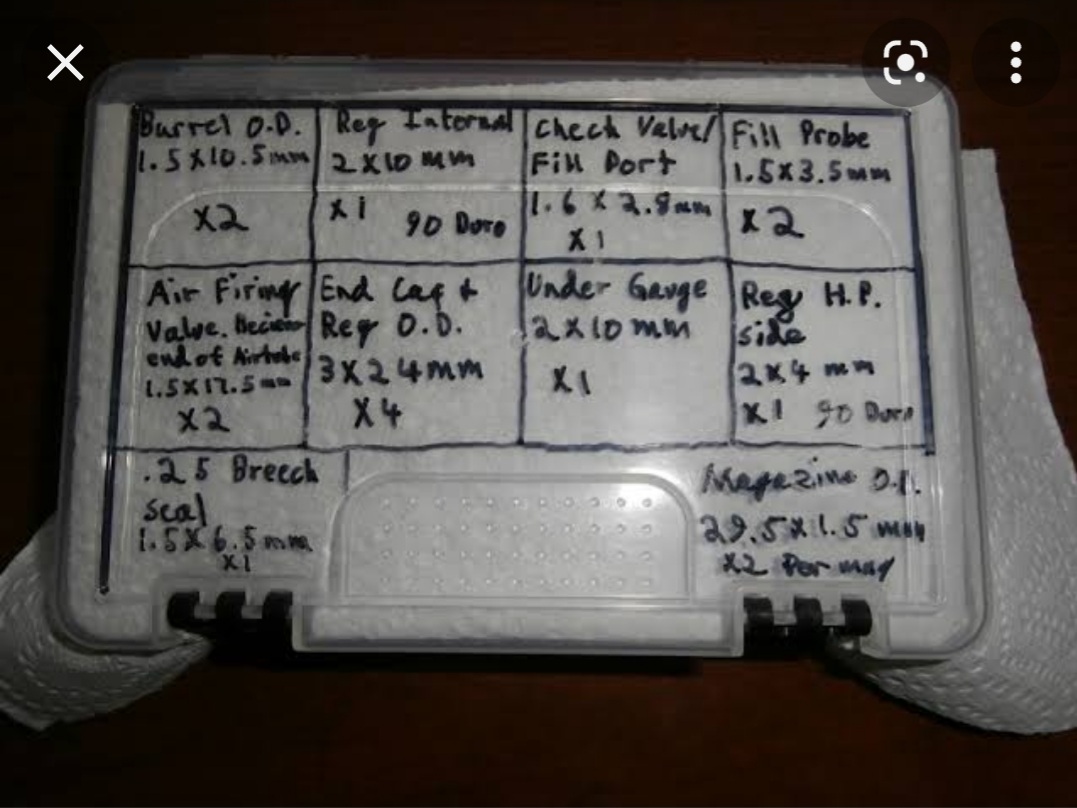 Barrel O.D.
1.5X10.5mm
X2
Reg Internal
2X10 mm
X1 90 Duro
Check Valve/
Fill Port
1.6 X 2.8mm
X1
Fill Probe
1.5X3.5mm
X2
Air Firing
Valve.
end of Airtube
1.5X17.5mm
X2
End Cap +
Reg O.D.
3X24mm
X4
Under Gauge
2X10mm
X1
Reg H.P.
side
2X4 mm
X1 90 Duro
.25 Breech
seal
1.5X6.5mm
X1
Magazine O.D.
29.5X1.5 mm
X2 Per mag